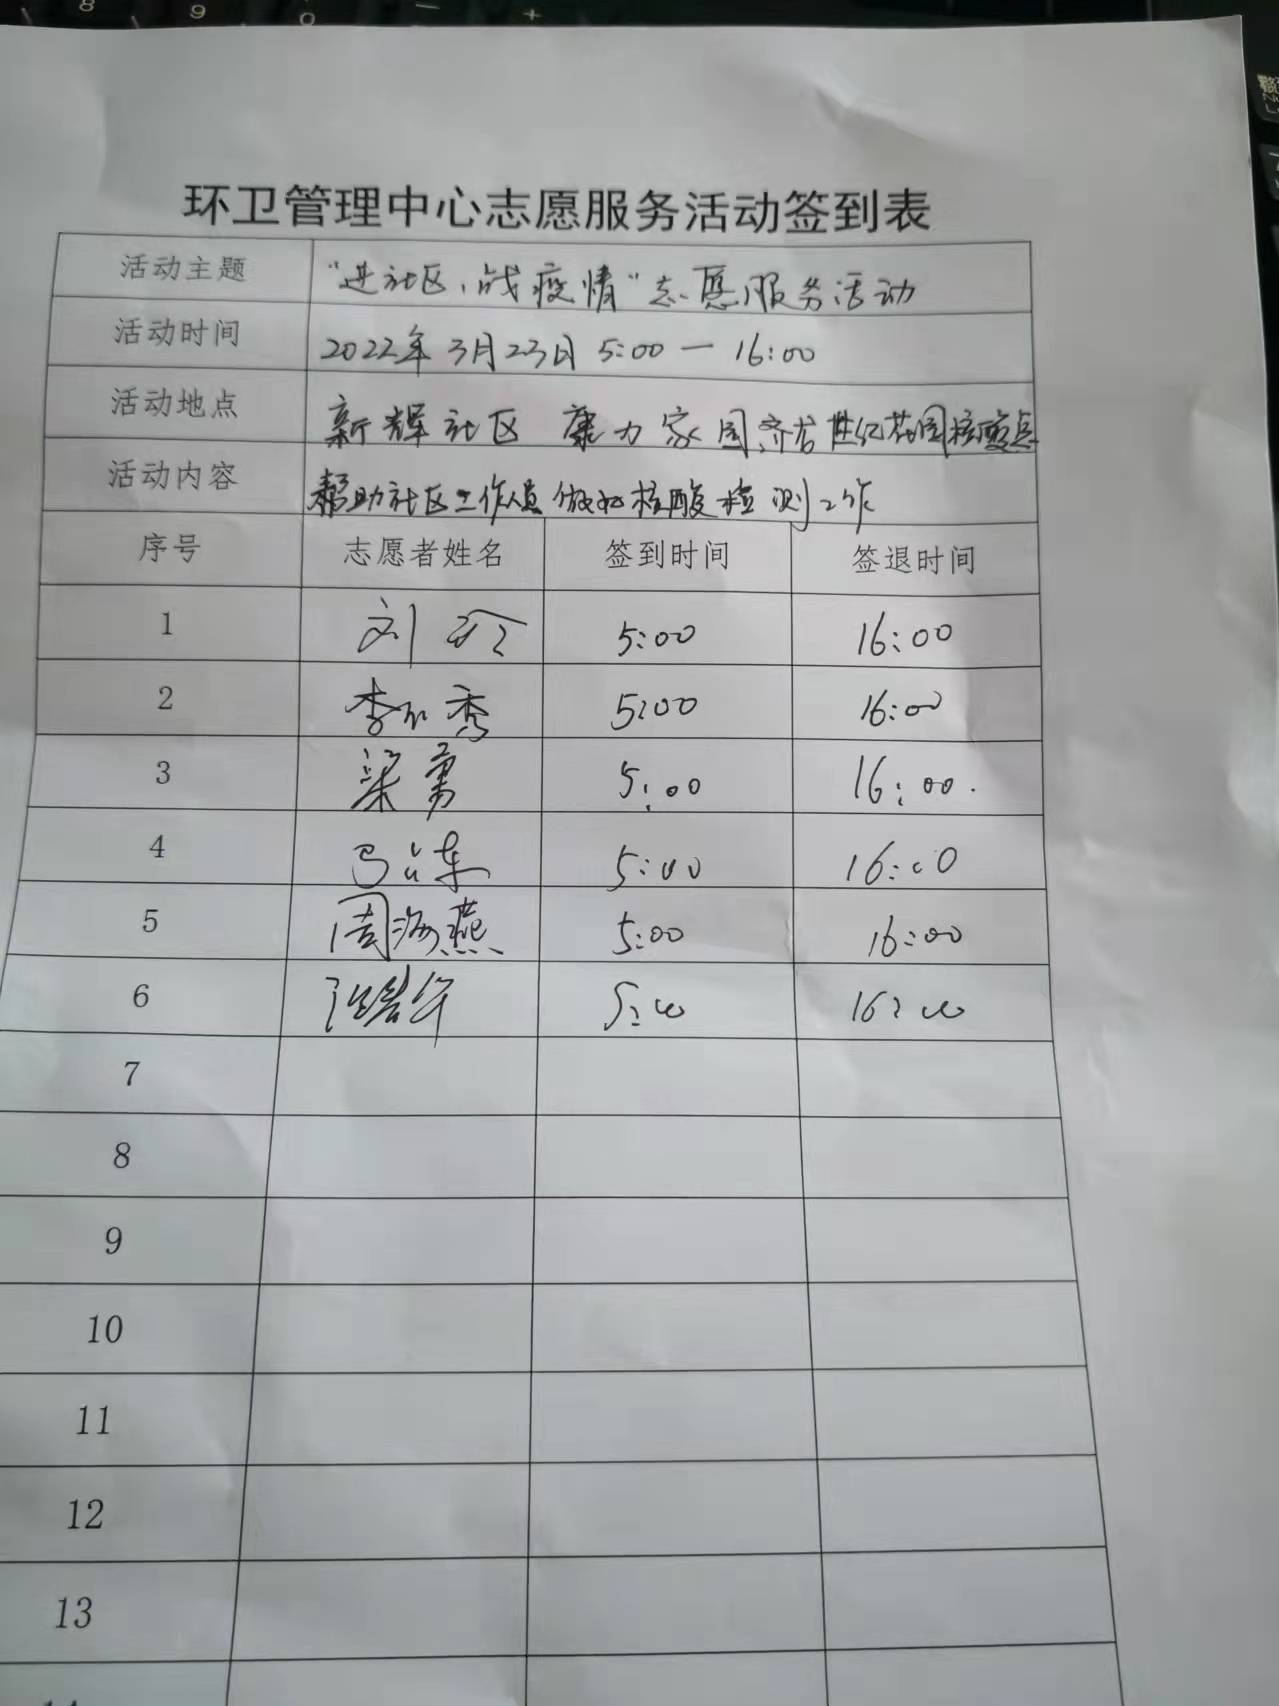 8 9 0 — +
环卫管理中心志愿服务活动签到表
活动主题 “进社区、战疫情”志愿服务活动
活动时间 2022年3月23日 5:00 — 16:00
活动地点 新辉社区 康力家园 世纪花园核酸点
活动内容 帮助社区工作人员做好核酸检测工作
序号 志愿者姓名 签到时间 签退时间
1 刘玲 5:00 16:00
2 李 秀 5:00 16:00
3 梁勇 5:00 16:00
4 5:00 16:00
5 周海燕 5:00 16:00
6 5:00 16:00
7
8
9
10
11
12
13